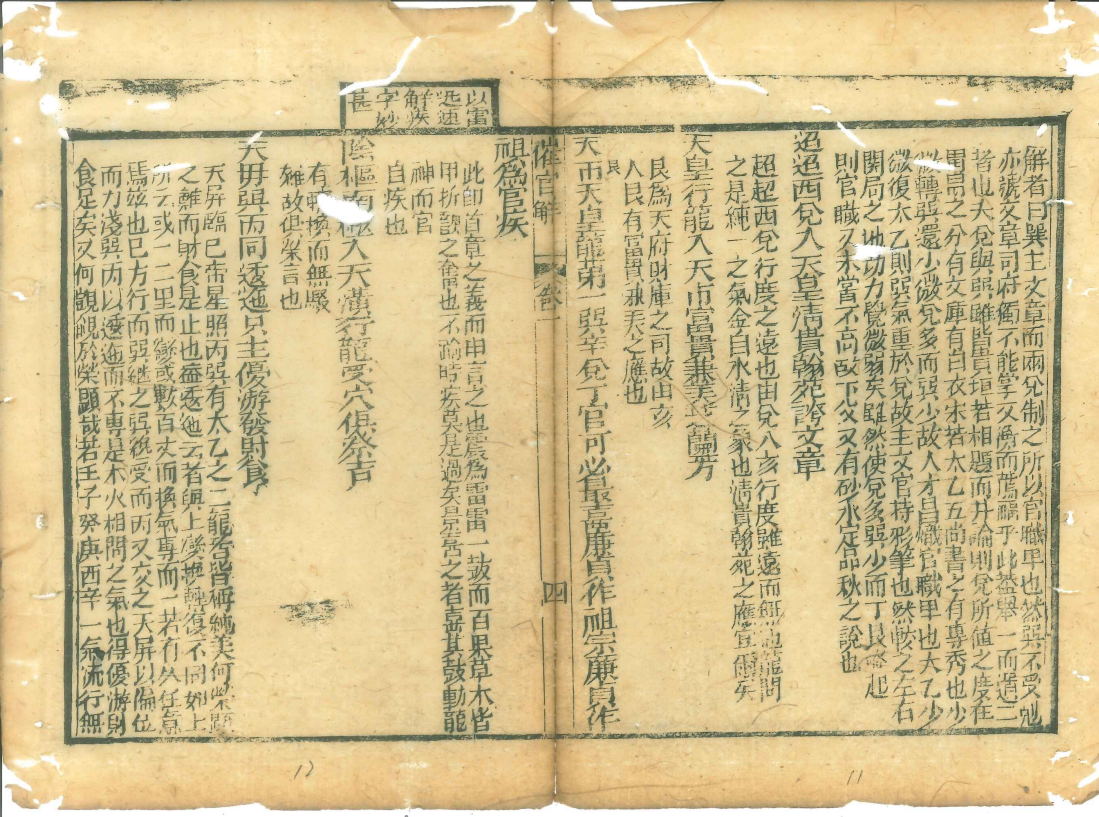 解者曰巽主文章而兩兌制之所以官職卑也然巽不受尅
亦號文章司府獨不能掌父爲而薦禰乎此蓋舉一而遺二
者也大兌與巽雖皆貴垣若相題而升論則兌所值之度在
胃昴之分有文庫有白衣末若太乙五尚書之有專秀也少
微轉巽還小微兌多而巽少故人才昌熾官職卑也太乙少
微復太乙則巽氣重於兌故主文官持彤筆也然較之左右
關局之地功力覺微弱矣雖然使兌多巽少而丁艮 起
則官職又未嘗不高故下文又有砂水定品秩之說也
迢迢西兌入天皇清貴翰苑誇文章
超超西兌行度之遠也由兌入亥行度雖遠而無他龍間
之是純一之氣金白水清之象也清貴翰苑之應宜爾矣
天皇行龍入天市富貴兼 蘭芳
艮爲天府財庫之司故由亥
入艮有富貴 之應也
天市天皇龍第一巽辛兌丁官可必最喜廉貞作祖宗廉貞作
催官解 卷一 四
祖爲官疾
以雷
迅速
解疾
字妙
甚
此卽首章之義而申言之也震爲雷雷一鼓而百果草木皆
甲折 之奮也不踰時疾莫是過矣最喜之者喜其鼓動龍
神而官
自疾也
陰樞 入天漢行龍受穴俱發吉
有 換而無 駁
雜故但槩言也
天毋與丙同逶迤只主優游發財食
天屏臨巳帝星照丙巽有太乙之二龍者皆稱純美何 題
之雜而財食是止也蓋逶迤云者與上變換轉復不同如上
所云或一二里而變或數百丈而換氣專而一若有久任意
焉玆也巳方行而巽繼之巽纔受而丙又交之天屏以偏位
而力淺巽丙以逶迤而不專是木火相間之氣也得優游則
食足矣又何覬覦於榮顯哉若壬子癸庚酉辛一氣流行無
12
11